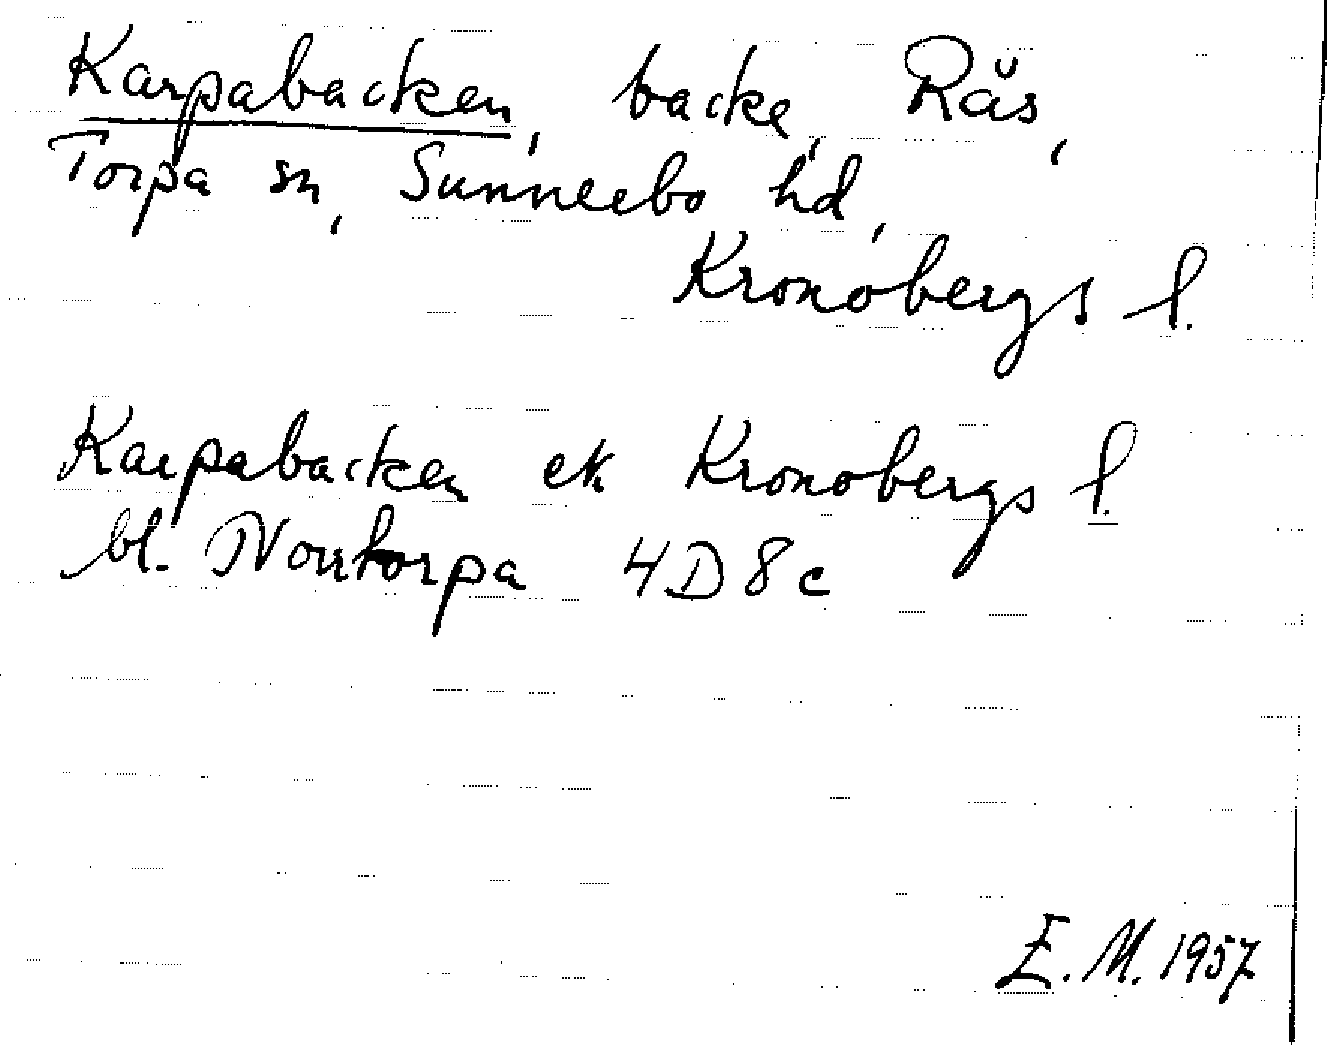 Karpabacken, backe, Rås,
Torpa sn, Sunnerbo hd,
Kronobergs l.
Karpabacken ek Kronobergs l.
bl. Norrtorpa 4D8c
E.M. 1957